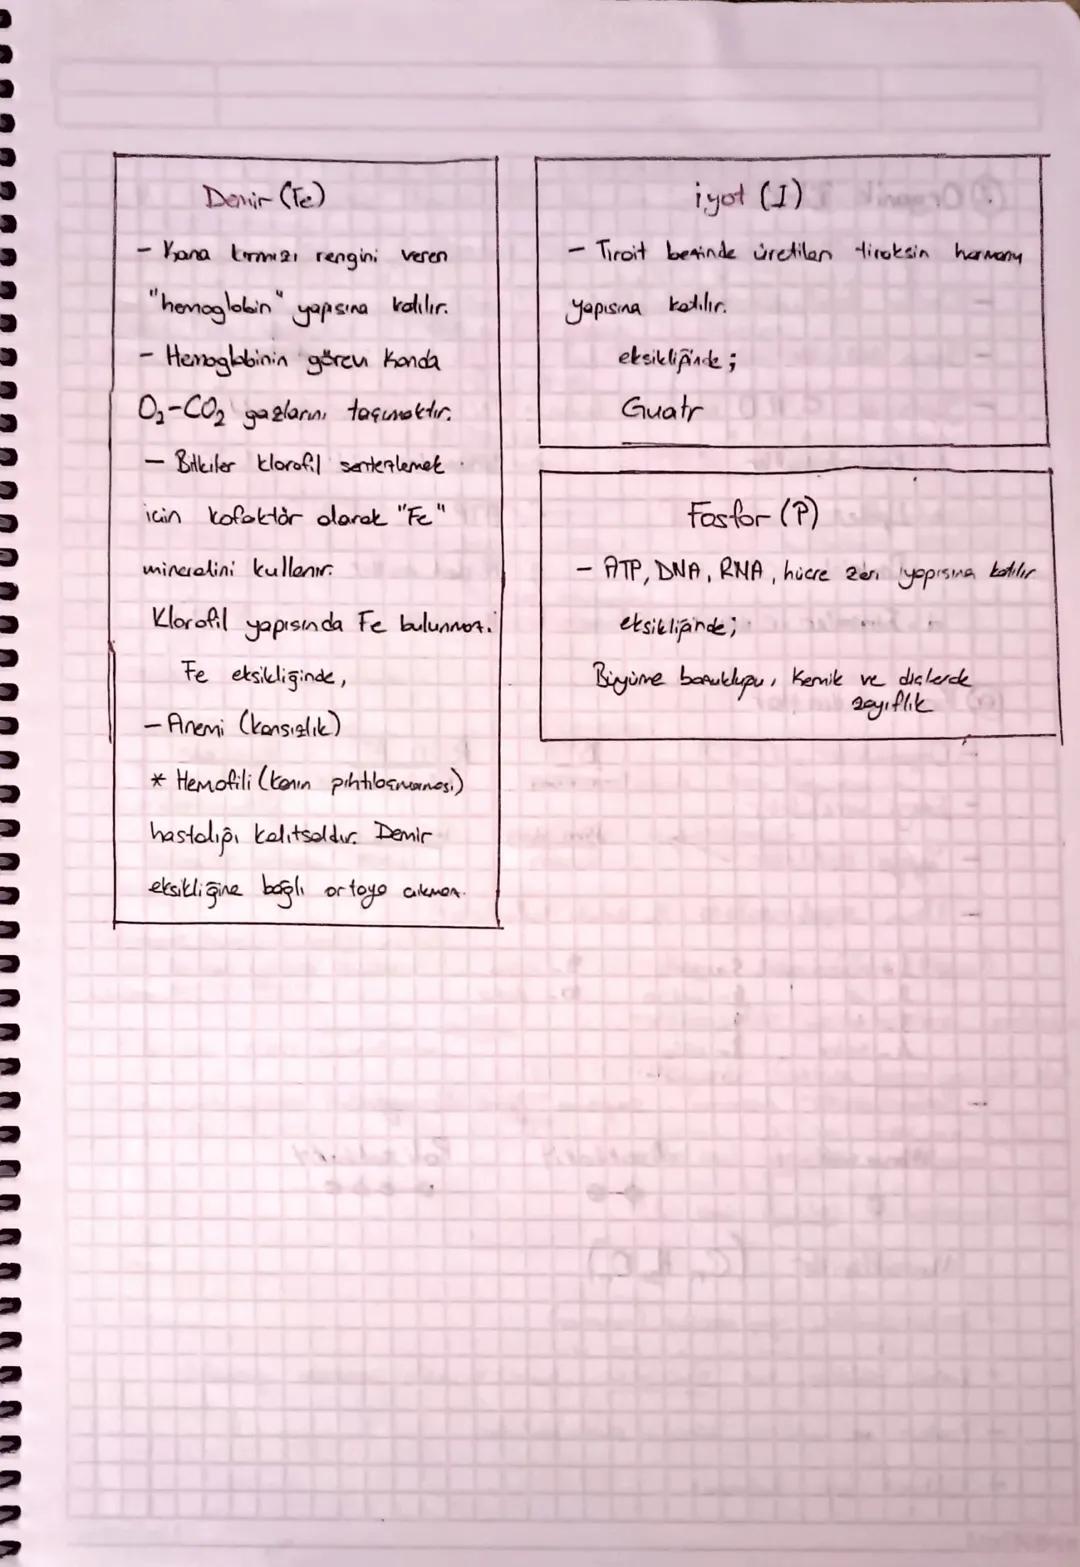 Demir (Fe)
- Kana kırmızı rengini veren
"hemoglobin" yapısına katılır.
- Hemoglobinin görevi kanda
O₂-CO₂ gazlarını taşımaktır.
- Bitkiler klorofil sentezlemek
için kofaktör olarak "Fe"
mineralini kullanır.
Klorofil yapısında Fe bulunmaz.
Fe eksikliğinde,
- Anemi (kansızlık)
* Hemofili (kanın pıhtılaşmaması)
hastalığı kalıtsaldır. Demir
eksikliğine bağlı ortaya çıkmaz.
iyot (I)
- Tiroit bezinde üretilen tiroksin hormonu
yapısına katılır.
eksikliğinde;
Guatr
Fosfor (P)
- ATP, DNA, RNA, hücre zarı yapısına katılır
eksikliğinde;
Büyüme bozukluğu, kemik ve dişlerde
zayıflık